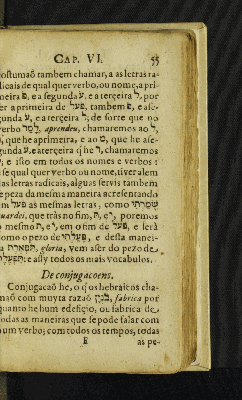 CAP. VI. 55
costumaõ tambem chamar, a as letras ra-
dicais de qual quer verbo, ou nome, a pri-
meira פ, e a segunda ע, e a terçeira ל, por
ser a primeira de פעל, tambem פ, e a se-
gunda ע, e a terçeira ל; de sorte que no
verbo לָמַד aprendeu, chamaremos ao ל,
פ, que he a primeira, e ao מ, que he a se-
gunda ע, e a terçeira q̃ he ד, chamaremos
ל; e isso em todos os nomes e verbos:
e se qual quer verbo ou nome, tiver alem
das letras radicais, algũas servis tambem
e peza da mesma maneira acresentando
em פעל as mesmas letras, como שָׁמַרְתִּי
guardei, que tràs no fim, תי, poremos
o mesmo תי, em o fim de פעל, e serà
como o pezo de פָּעַלְתִּי, e desta manei-
ra תִּפְאֶרֶת, gloria, vem a ser do pezo de
תִּפְעֶלֶת: e assy todos os mais vocabulos.
De conjugacoens.
Conjugacaõ he, o q̃ os hebraicos cha-
maõ com muyta razaõ בִּנְיָן, fabrica por
quanto he hum edefiçio, ou fabrica de
todas as maneiras que se pode falar com
hum verbo; com todos os tempos, todas
E as pe-